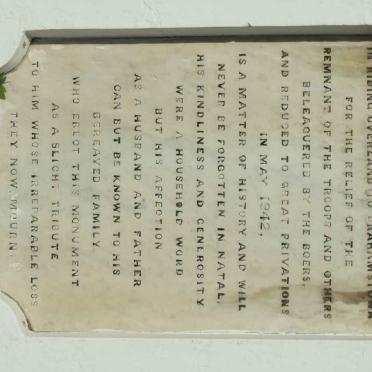 IN RIDING OVERLAND TO GRAHAMSTOWN
FOR THE RELIEF OF THE
REMNANT OF THE TROOPS AND OTHERS
BELEAGUERED BY THE BOERS,
AND REDUCED TO GREAT PRIVATIONS
IN MAY 1942,
IS A MATTER OF HISTORY AND WILL
NEVER BE FORGOTTEN IN NATAL,
HIS KINDLINESS AND GENEROSITY
WERE A HOUSEHOLD WORD
BUT HIS AFFECTION
AS A HUSBAND AND FATHER
CAN BUT BE KNOWN TO HIS
BEREAVED FAMILY
WHO ERECT THIS MONUMENT
AS A SLIGHT TRIBUTE
TO HIM WHOSE IRREPARABLE LOSS
THEY NOW MOURN